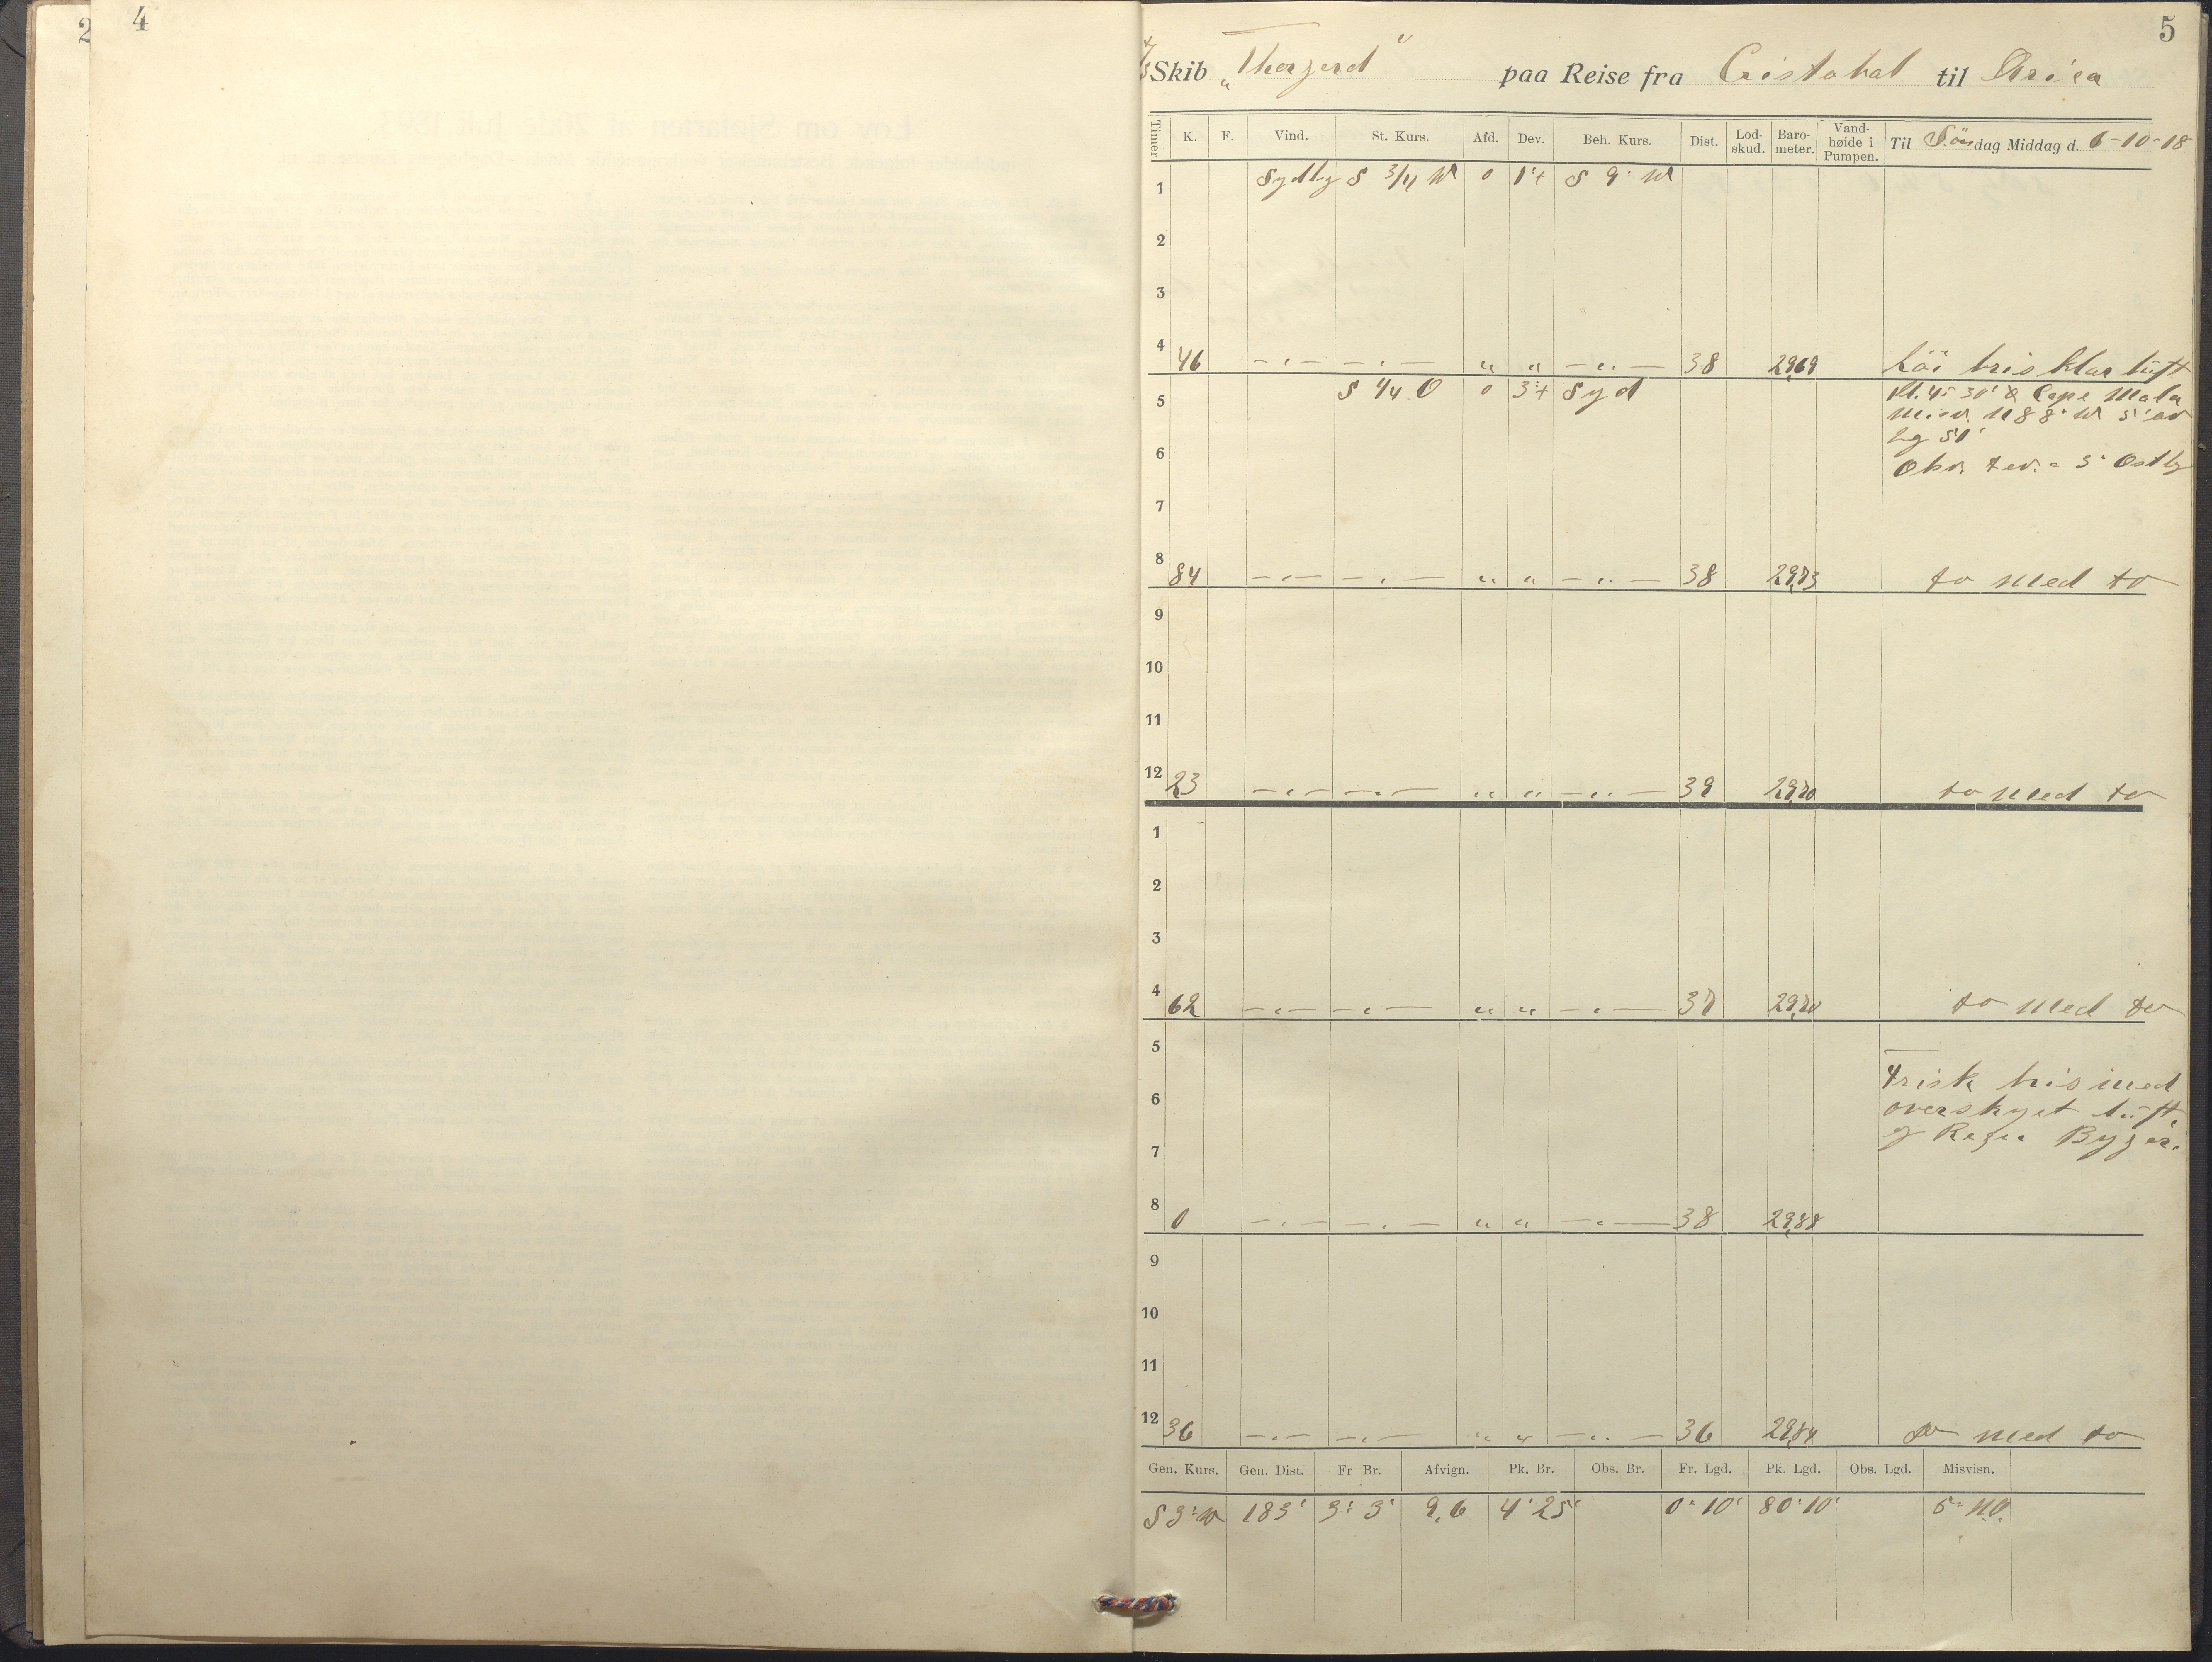 2
4
5
Skib „Thorgerd" paa Reise fra Cristobal til Arica
Timer K. F. Vind. St. Kurs. Afd. Dev. Beh. Kurs. Dist. Lod-skud. Baro-meter. Vand-høide i Pumpen. Til Søndag Middag d. 6-10-18
1 Sydlig S 3/4 W 0 1°+ S 9° W
2
3
4 46 – „ – – „ – „ „ – „ – 38 29,69 Løi bris klar luft
5 S 1/4 O 0 3°+ Syd Kl. 4- 30' Cape Mala
misv. N 88° W 5' av
Lg 51'
6 Obs. dev. = 3° Ostlig
7
8 84 – „ – – „ – „ „ – „ – 38 29,73 do med do
9
10
11
12 23 – „ – – „ – „ „ – „ – 39 29,70 do med do
1
2
3
4 62 – „ – – „ – „ „ – „ – 37 29,70 do med do
5
Frisk bris med
6 overskyet luft,
og Regn Byger.
7
8 0 – „ – – „ – „ „ – „ – 38 29,88
9
10
11
12 36 – „ – – „ – „ „ – „ – 36 29,84 do med do
Gen. Kurs. Gen. Dist. Fr Br. Afvign. Pk. Br. Obs. Br. Fr. Lgd. Pk. Lgd. Obs. Lgd. Misvisn.
S 3° W 183' 3° 3' 9,6 4° 25' 0° 10' 80° 10' 5° N.O.